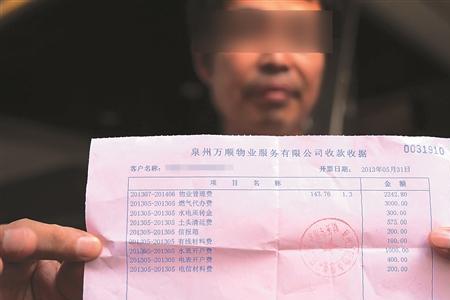 泉州万顺物业服务有限公司收款收据 0031910
客户名称: 开票日期: 2013年05月31日
项 目 名 称 金 额
201307-201406 物业管理费 143.76 1.3 2242.80
201305-201305 燃气代办费 3000.00
201305-201305 水电周转金 300.00
201305-201305 土头清运费 575.00
201305-201305 信报箱 200.00
201305-201305 有线材料费 100.00
201305-201305 水表开户费 1000.00
201305-201305 电表开户费 400.00
201305-201305 电信材料费 200.00